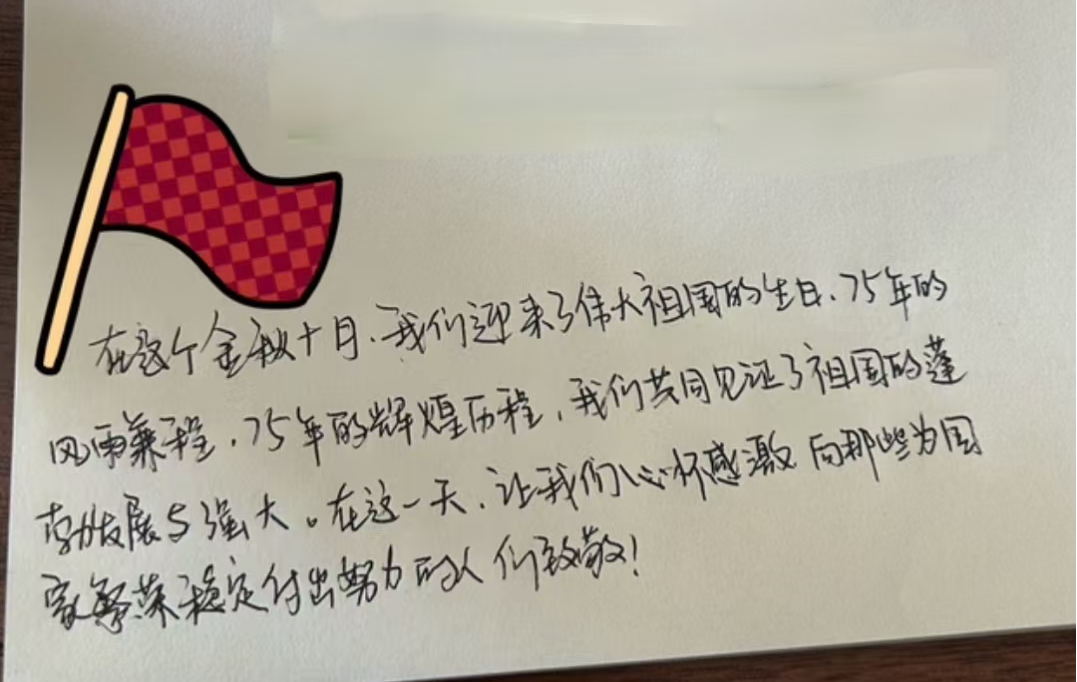 在这个金秋十月、我们迎来了伟大祖国的生日、75年的
风雨兼程,75年的辉煌历程,我们共同见证了祖国的蓬
勃发展与强大。在这一天、让我们心怀感激 向那些为国
家繁荣稳定付出努力的人们致敬!